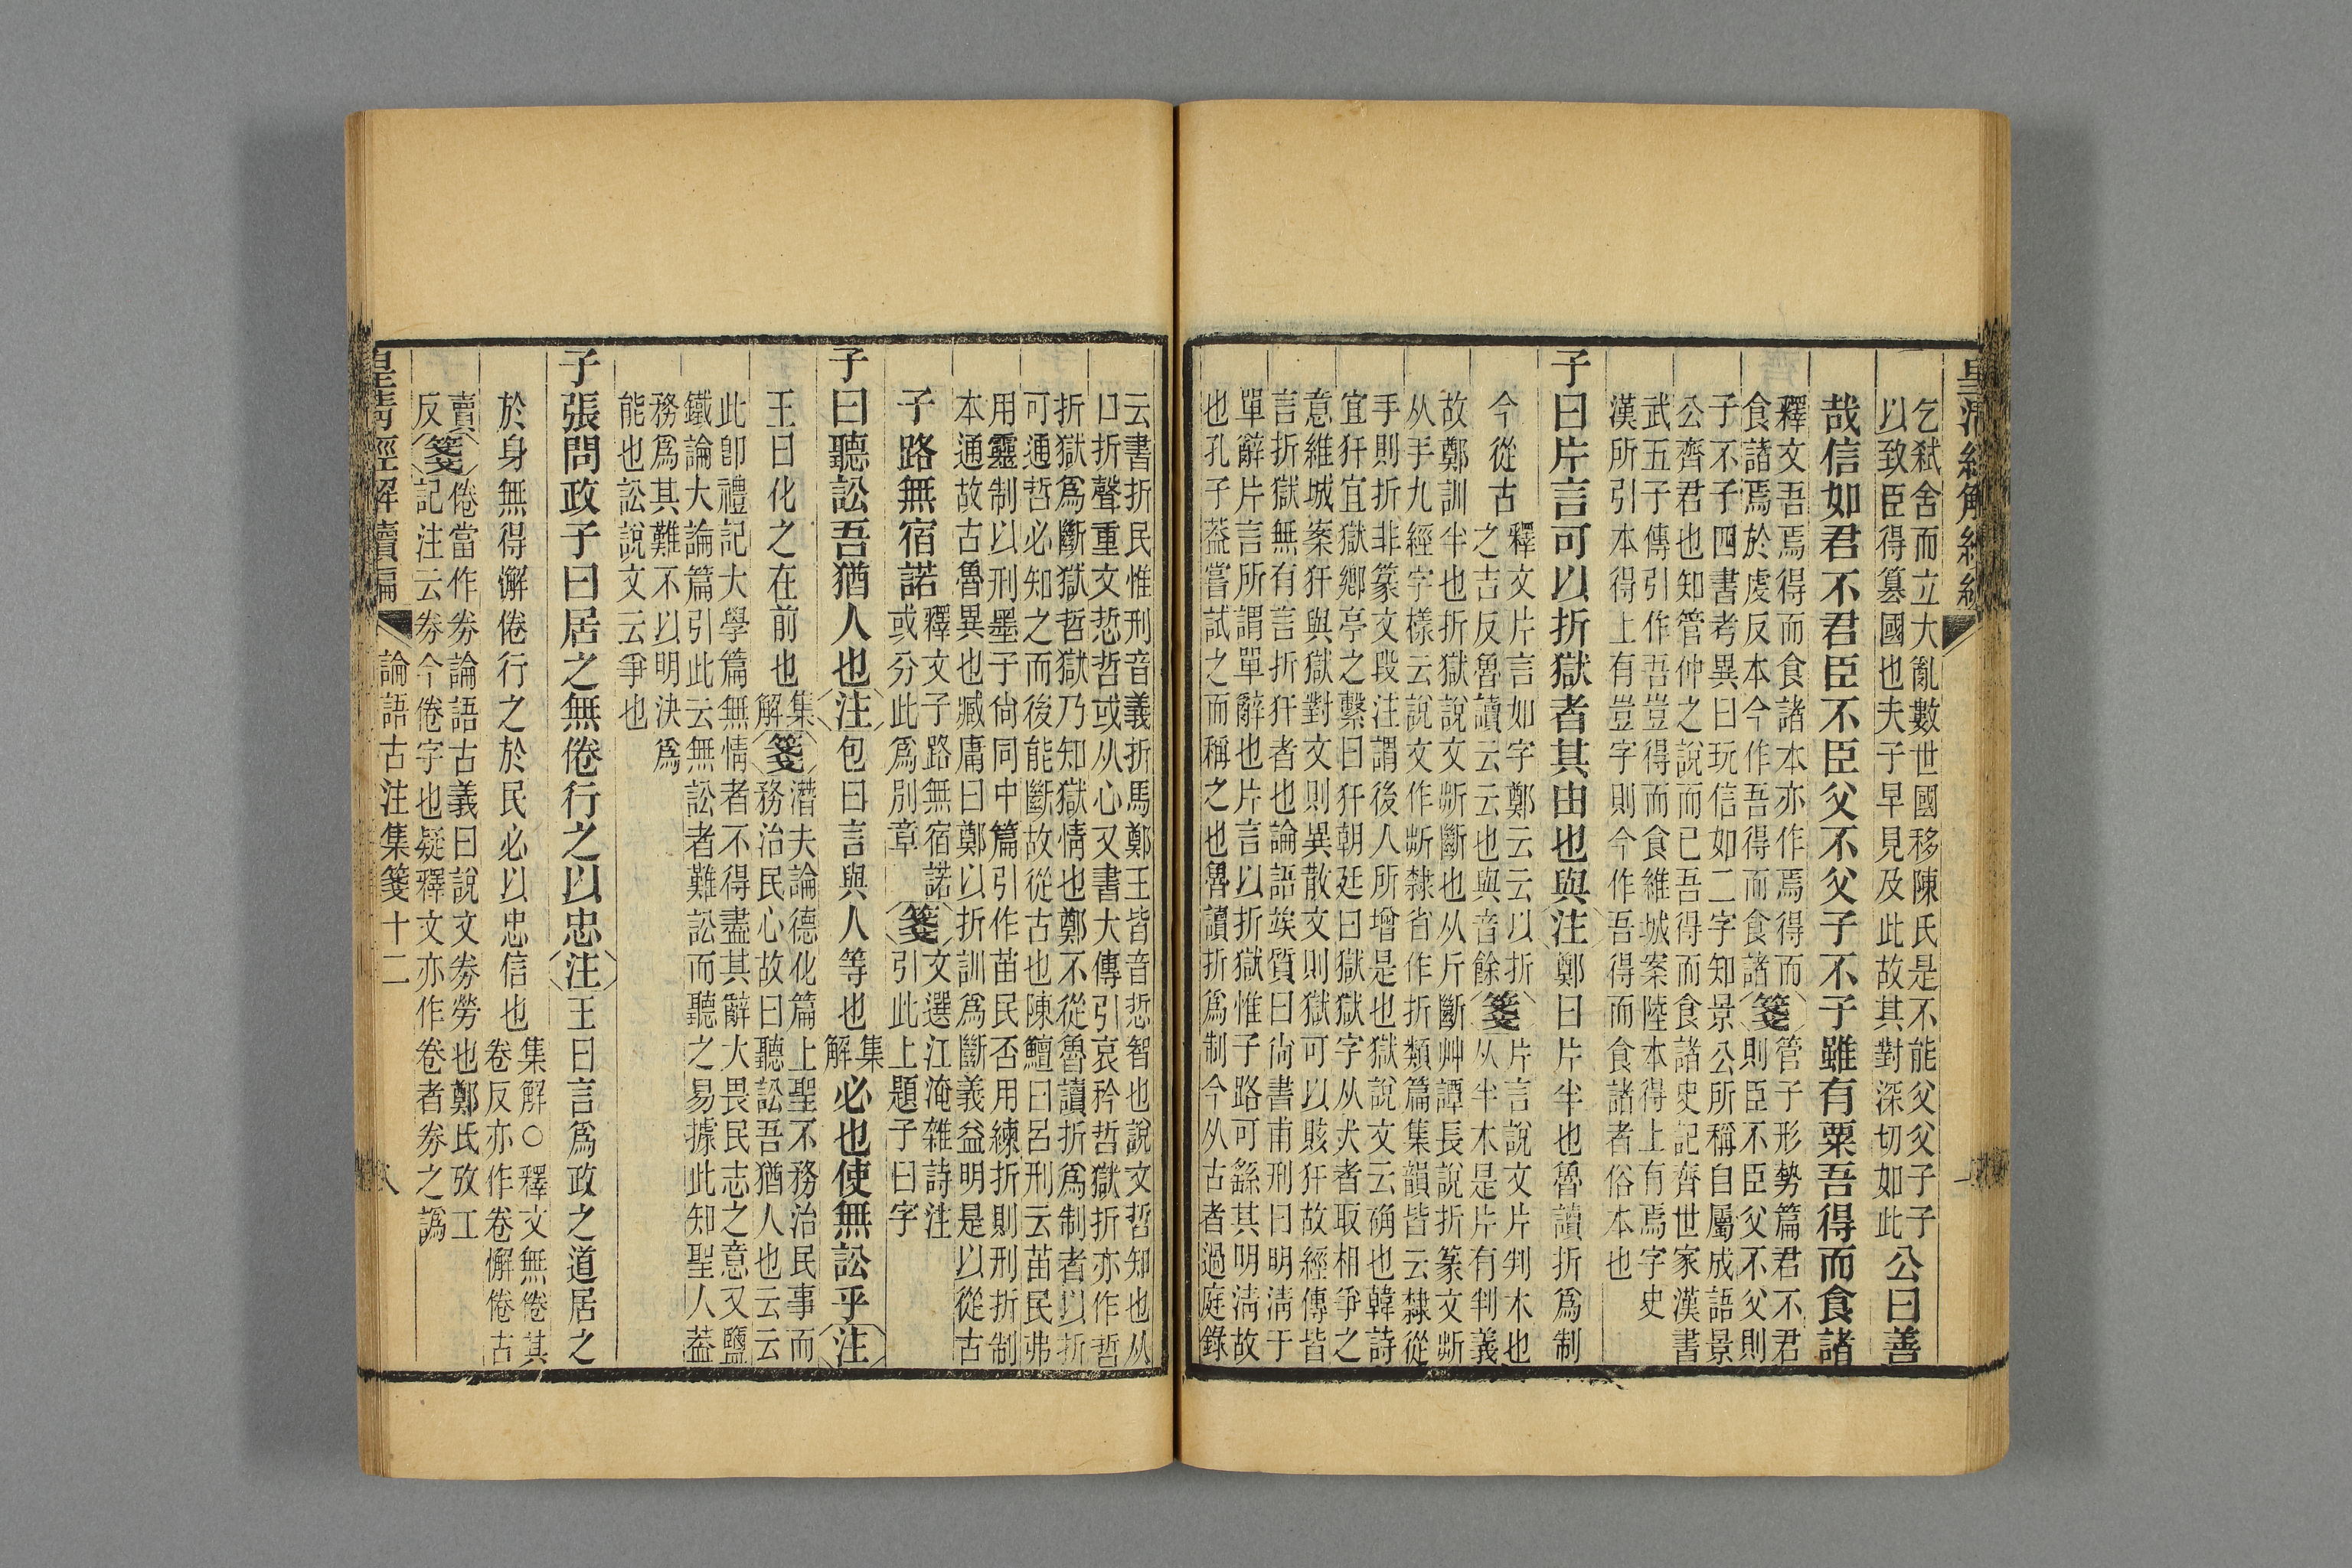 乞弑舍而立大亂數世國移陳氏是不能父父子子
以致臣得篡國也夫子早見及此故其對深切如此
公曰善
哉信如君不君臣不臣父不父子不子雖有粟吾得而食諸
釋文吾焉得而食諸本亦作焉得而
食諸焉於虔反本今作吾得而食諸
箋
管子形勢篇君不君
則臣不臣父不父則
子不子四書考異曰玩信如二字知景公所稱自屬成語景
公齊君也知管仲之說而已吾得而食諸史記齊世家漢書
武五子傳引作吾豈得而食維城案陸本得上有焉字史
漢所引本得上有豈字則今作吾得而食諸者俗本也
子曰片言可以折獄者其由也與
注
鄭曰片半也魯讀折爲制
今從古
釋文片言如字鄭云云以折
之吉反魯讀云云也與音餘
箋
片言說文片判木也
从半木是片有判義
故鄭訓半也折獄說文斯斷也从斤斷艸譚長說折篆文斯
从手九經字樣云說文作斯隸省作折類篇集韻皆云隸從
手則折非篆文段注謂後人所增是也獄說文云确也韓詩
宜犴宜獄鄉亭之繫曰犴朝廷曰獄獄字从㹜者取相爭之
意維城案犴與獄對文則異散文則獄可以賅犴故經傳皆
言折獄無有言折犴者也論語竢質曰尙書甫刑曰明淸于
單辭片言所謂單辭也片言以折獄惟子路可繇其明淸故
也孔子葢嘗試之而稱之也魯讀折爲制今从古者過庭錄
云書折民惟刑音義折馬鄭王皆音悊智也說文哲知也从
口折聲重文悊哲或从心又書大傳引哀矜哲獄折亦作哲
折獄爲斷獄哲獄乃知獄情也鄭不從魯讀折爲制者以折
可通哲必知之而後能斷故從古也陳鱣曰呂刑云苗民弗
用靈制以刑墨子尙同中篇引作苗民否用練折則刑折制
本通故古魯異也臧庸曰鄭以折訓爲斷義益明是以從古
子路無宿諾
釋文子路無宿諾
或分此爲別章
箋
文選江淹雜詩注
引此上題子曰字
子曰聽訟吾猶人也
注
包曰言與人等也
集
解
必也使無訟乎
注
王曰化之在前也
集
解
箋
潛夫論德化篇上聖不務治民事而
務治民心故曰聽訟吾猶人也云云
此卽禮記大學篇無情者不得盡其辭大畏民志之意又鹽
鐵論大論篇引此云無訟者難訟而聽之易據此知聖人葢
務爲其難不以明決爲
能也訟說文云爭也
子張問政子曰居之無倦行之以忠
注
王曰言爲政之道居之
於身無得懈倦行之於民必以忠信也
集解○釋文無倦其
卷反亦作卷懈倦古
賣
反
箋
倦當作劵論語古義曰說文劵勞也鄭氏攷工
記注云劵今倦字也疑釋文亦作卷者劵之譌
論語古注集箋十二
八